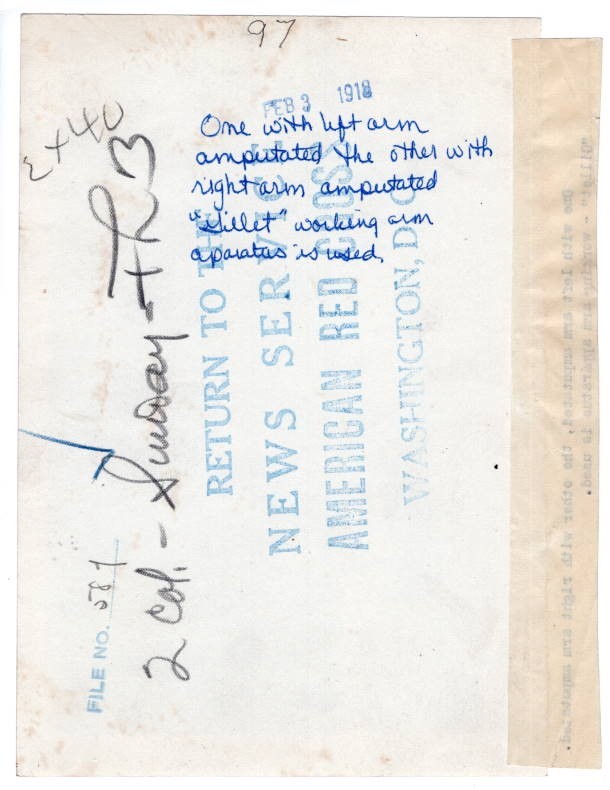 97
FEB 3 1918
One with left arm
amputated the other with
right arm amputated
"Gillet" working arm
aparatus is used.
RETURN TO THE
NEWS SERVICE
AMERICAN RED CROSS
WASHINGTON, D.C.
2 col. - Sunday -
FILE NO. 587
One with left arm amputated, the other with right arm amputated.
"Gillet" - working arm aparatus is used.